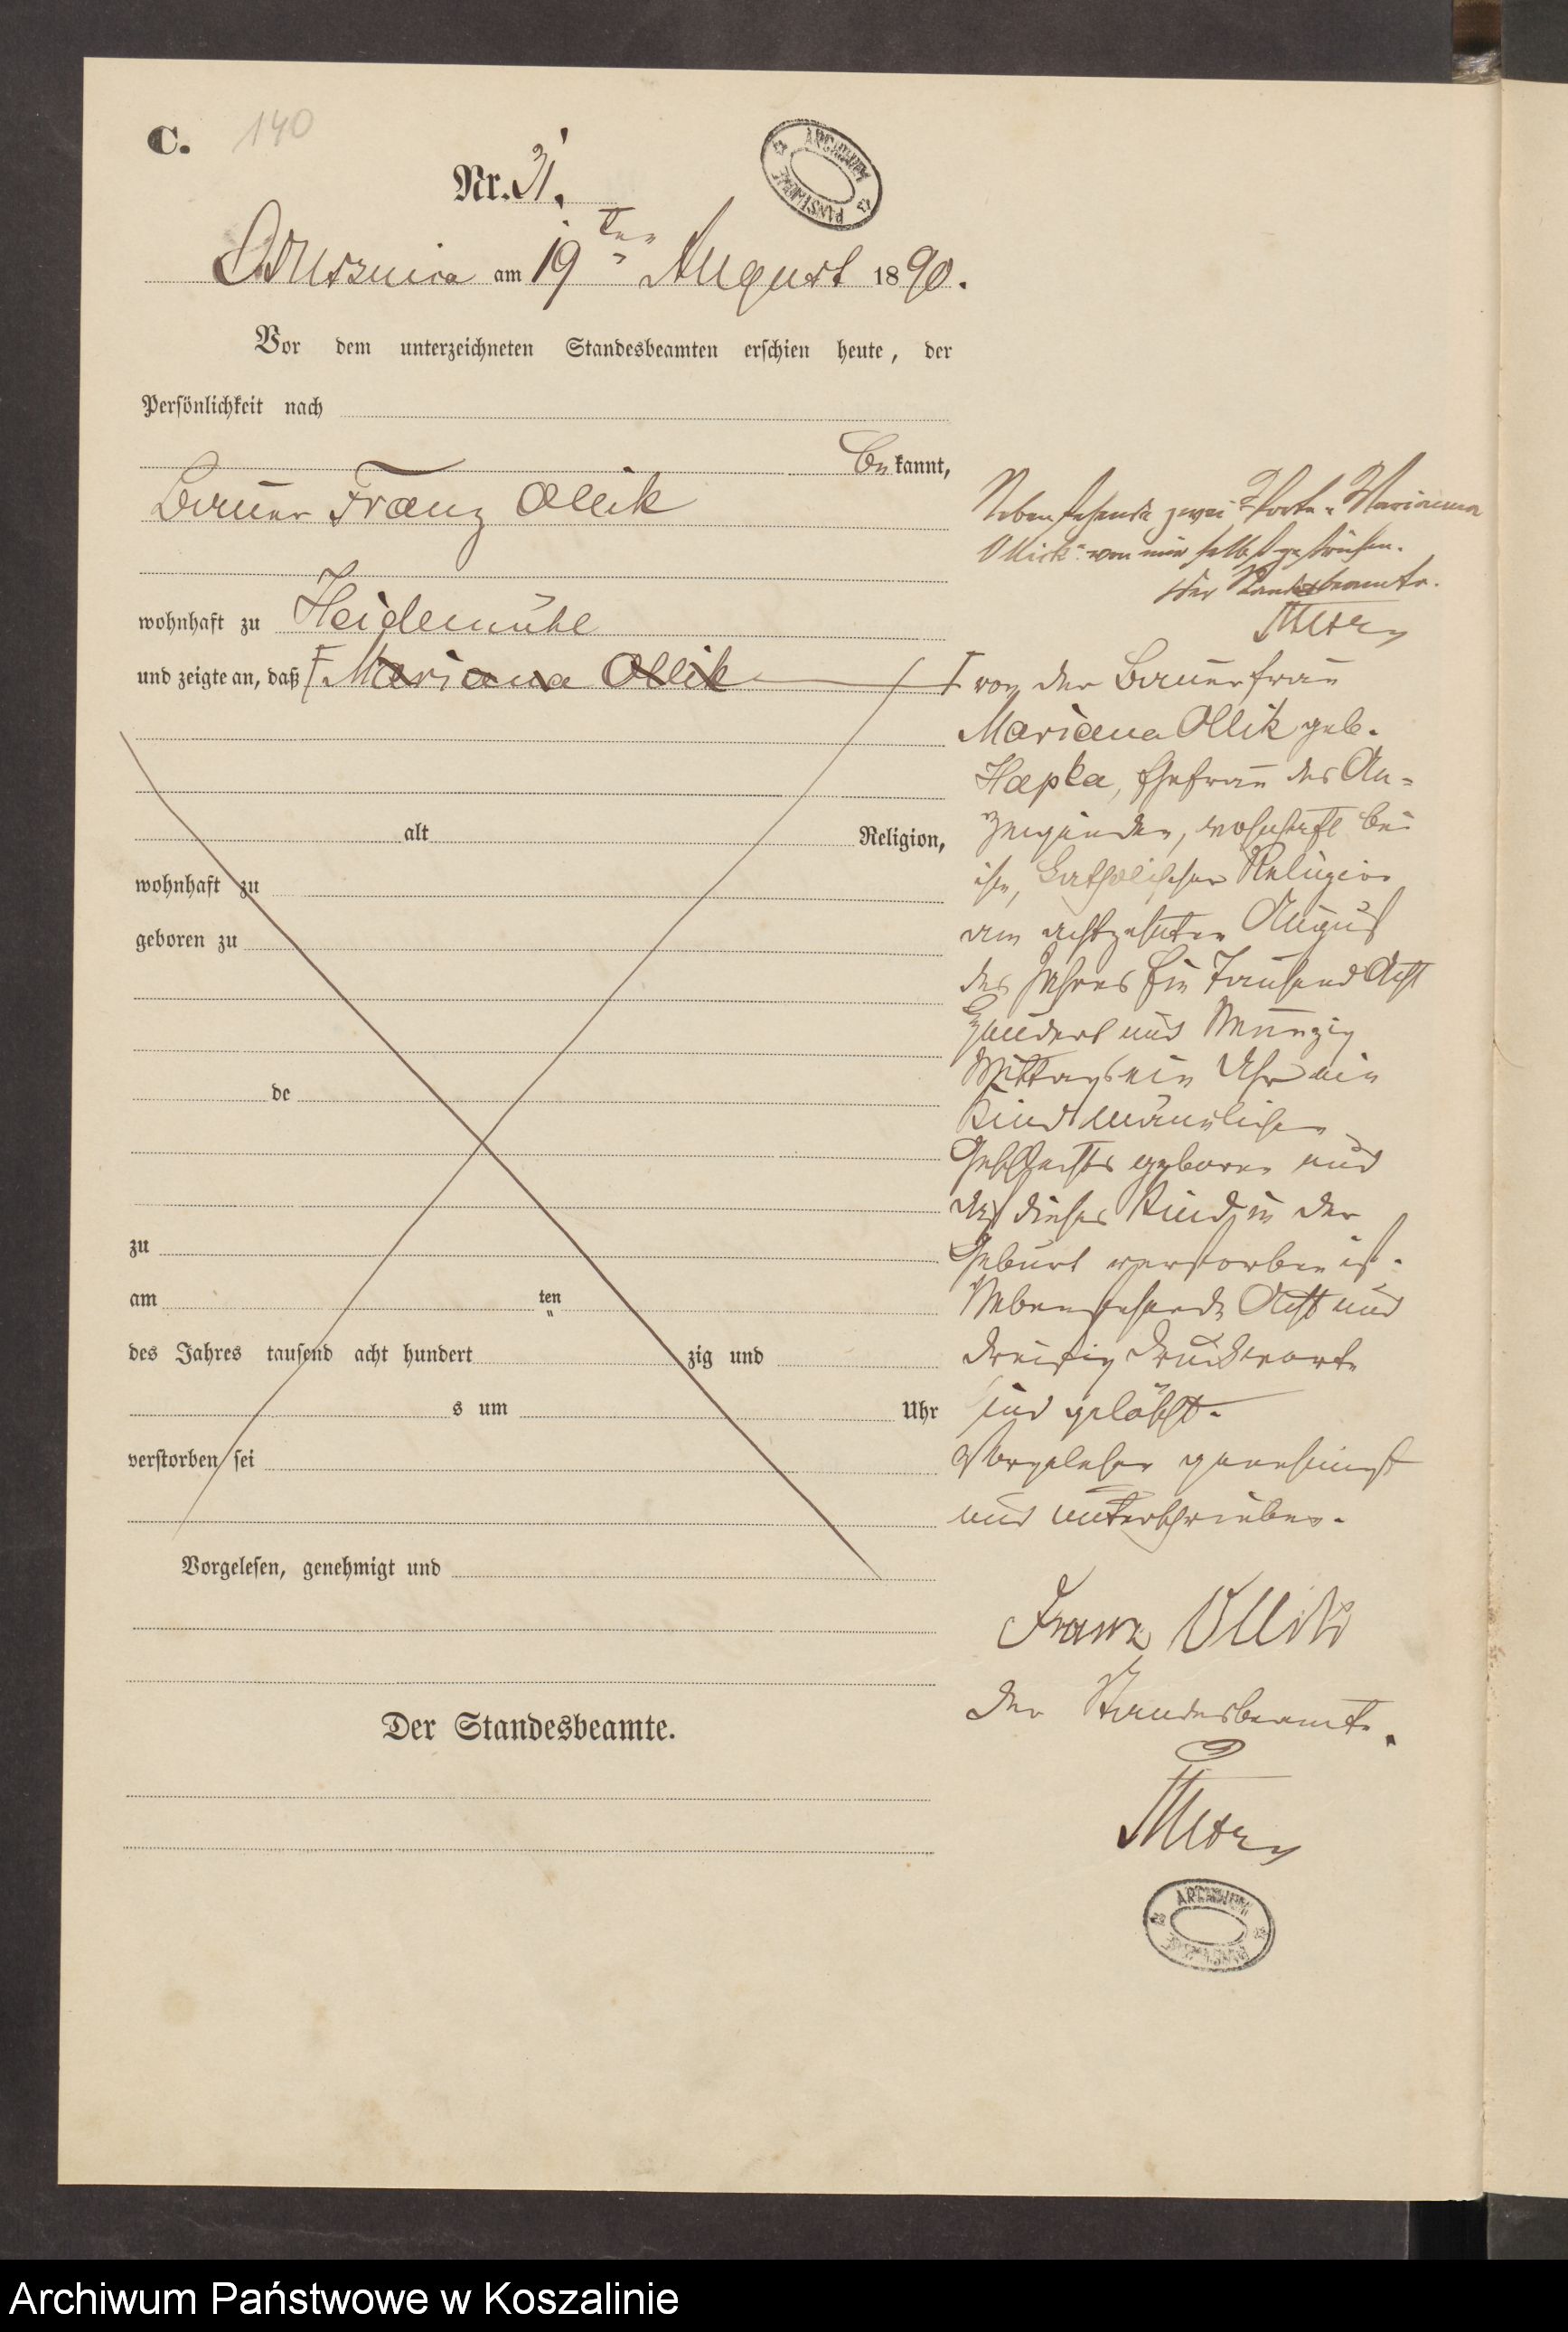 C. 140
Nr. 31.
ARCHIWUM PAŃSTWOWE
am 19ten August 1890.
Vor dem unterzeichneten Standesbeamten erschien heute, der
Persönlichkeit nach
bekannt,
Bauer Franz Ollik
wohnhaft zu Heidemühl
und zeigte an, daß Mariana Ollik
alt Religion,
wohnhaft zu
geboren zu
de
zu
am ten
des Jahres tausend acht hundert zig und
s um Uhr
verstorben sei
Vorgelesen, genehmigt und
Der Standesbeamte.
Nebenstehende zwei Worte „Marianna
Ollick" von mir selbst gestrichen.
Der Standesbeamte.
von der Bauerfrau
Mariana Ollik geb.
Hapka, Ehefrau des An-
zeigenden, wohnhaft bei
ihm, katholischer Religion
am achtzehnten August
des Jahres Ein Tausend Acht
Hundert und Neunzig
Mittags ein Uhr ein
Kind männlichen
Geschlechts geboren und
daß dieses Kind in der
Geburt verstorben ist.
Nebenstehende Acht und
dreißig Druckworte
sind gelöscht.
Vorgelesen genehmigt
und unterschrieben.
Franz Ollik
Der Standesbeamte.
ARCHIWUM PAŃSTWOWE
Archiwum Państwowe w Koszalinie